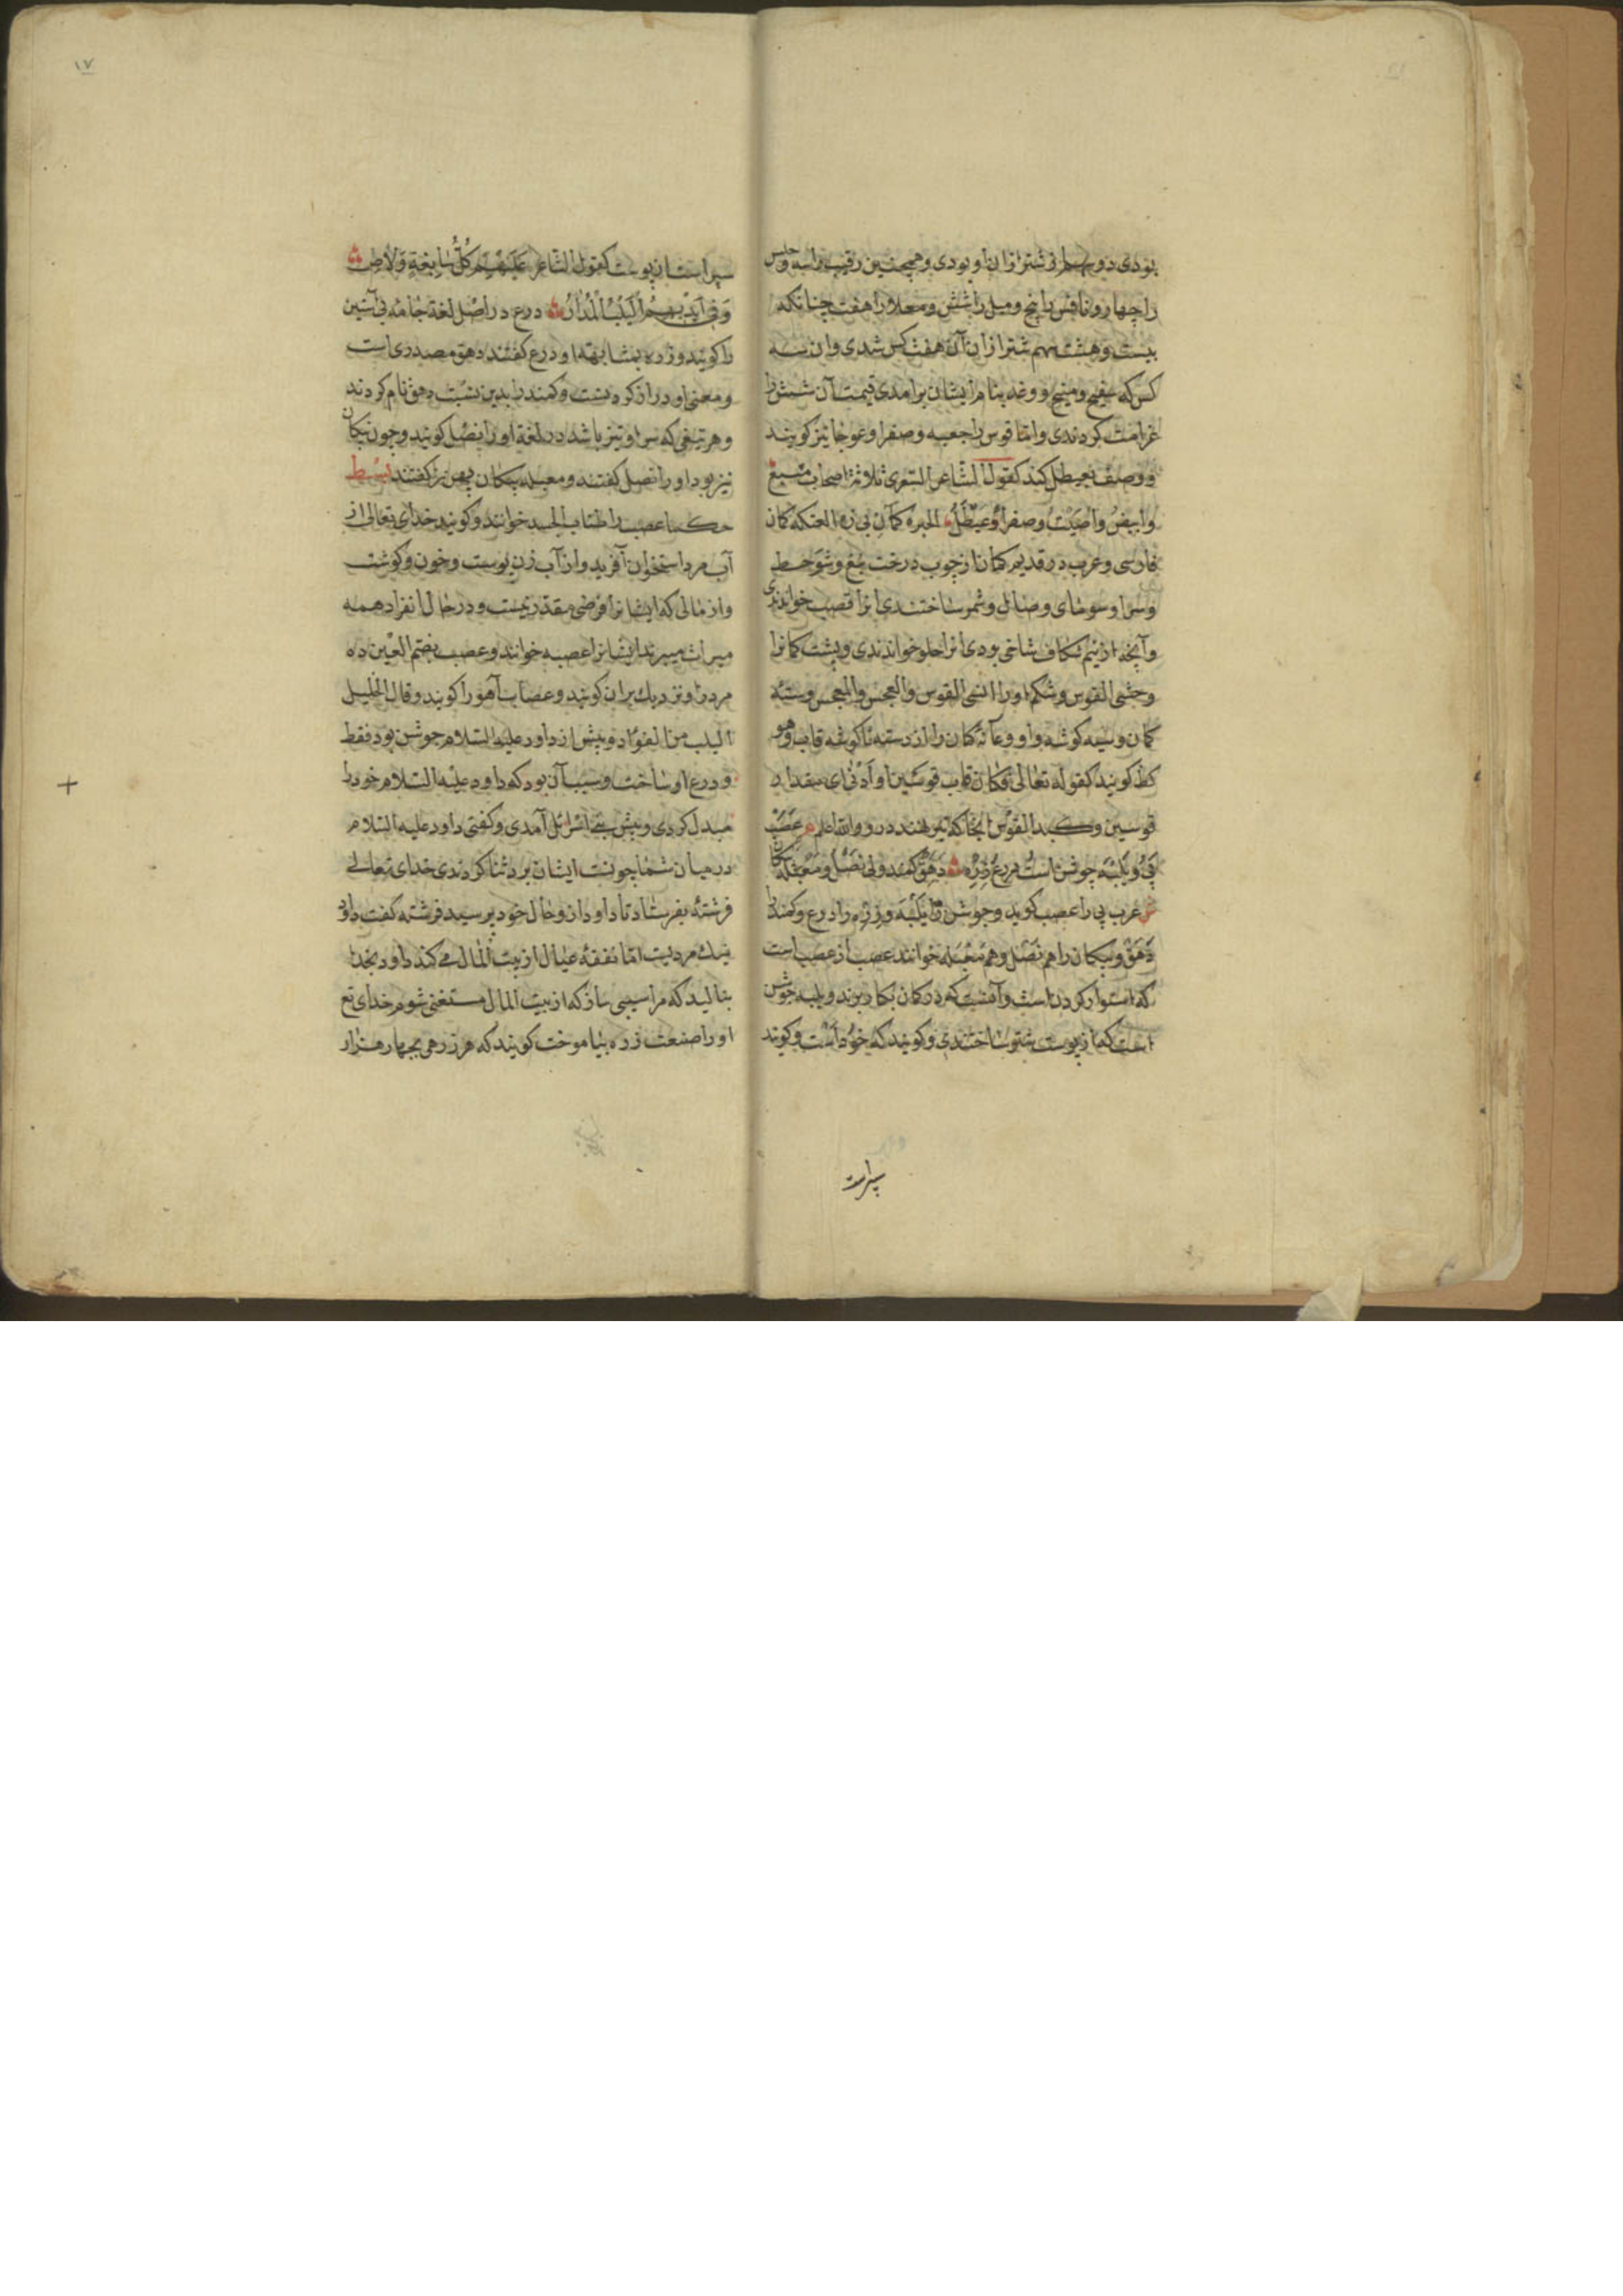 بودی دو سهم از شتر ازان او بودی و همچنین رقیب را سه و حلس
را چهار و نافس را پنج و مسبل را شش و معلا را هفت چنانکه
بیست و هشت سهم شتر ازان آن هفت کس شدی و ان سه
کس که سفیح و منیح و وغد بنام ایشان برامدی قیمت آن شتر را
غرامت کردندی و اما قوس را جعبه و صفرا و عوجا نیز کویند
و وصف بعیطل کند کقول الشاعر الشنفری ثلاثة اصحاب مشیع
وابیض واصلیت وصفراء عیطل کمان بی زه العتکه کمان
فارسی و عرب در قدیم کمان از چوب درخت نبع و شوحط
و سرا و ساختندی انرا قضیب خواندندی
و آنچه از نیم شکاف شاخی بودی انرا فلو خواندندی و پشت کمانرا
وحشی القوس و شکم اورا انسی القوس والعجس والمعجس و سیه
کمان و سیه کوشه و او وعآنه کمان را از دسته تا کوشه قاب وهو
کظ کویند کقوله تعالی فکان قاب قوسین او ادنی ای مقدار
قوسین و کبد القوس انجا که تیر نهند در و والله اعلم عصب
پی و یلبه جوشن است درع زره دهق کمند ولی نصل و معبله پیکان
عرب پی را عصب کوید و جوشن را یلبه و زره را درع و کمند را
دهق و پیکان را هم نصل و هم معبله خوانند عصب از عصب است
که استوار کردن است و آنست که در کمان بکار برند و یلبه جوشن
است که از پوست شتر ساختندی و کویند که خود است و کویند
سپر است
۱۷
سپر است از پوست کقول الشاعر علیهم کل سابغة ولاص
وفی ایدیهم الیلب المدار درع در اصل لغة جامه ئی آهنین
را کویند و زره بمشابهت او درع کفتند دهق مصدری است
و معنی او دراز کردنست و کمند را بدین نسبت دهق نام کردند
و هر تیغی که سر او تیز باشد در لغة او را نصل کویند و چون پیکان
تیز بود او را نصل کفتند و معبله پیکان پهن را کفتند بسط
حکما عصب را طناب الجسد خوانند و کویند خدای تعالی از
آب مرد استخوان آفرید و از آب زن پوست و خون و کوشت
و از مالی که ایشانرا فرضی مقدر نیست و در حال انفراد همه
میراث میبرند ایشانرا عصبه خوانند و عصب بضم العین ده
مرد را و نزدیک بران کویند و عصاب آهو را کویند و قال الخلیل
الیلب من الفولاد و پیش از داود علیه السلام جوشن بود فقط
و درع او ساخت و سبب آن بود که داود علیه السلام خود را
مبدل کردی و پیش بنی اسرائل آمدی و کفتی داود علیه السلام
در میان شما چونست ایشان برو ثنا کردندی خدای تعالی
فرشته بفرستاد تا داود از و حال خود پرسید فرشته کفت داود
نیک مردیست اما نفقه عیال از بیت المال می کند داود بخدا
بنالید که مرا سببی ساز که از بیت المال مستغنی شوم خدای تع
او را صنعت زره بیاموخت کویند که هر زرهی بچهار هزار